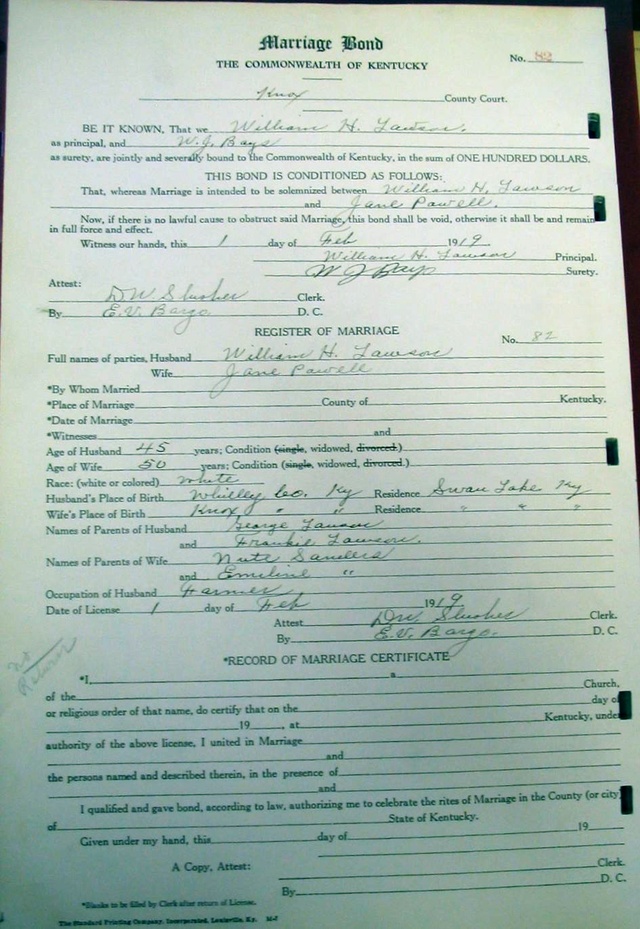 Marriage Bond
THE COMMONWEALTH OF KENTUCKY
No. 82
Knox County Court.
BE IT KNOWN, That we William H. Lawson,
as principal, and W. J. Bays
as surety, are jointly and severally bound to the Commonwealth of Kentucky, in the sum of ONE HUNDRED DOLLARS.
THIS BOND IS CONDITIONED AS FOLLOWS:
That, whereas Marriage is intended to be solemnized between William H. Lawson
and Jane Pawell.
Now, if there is no lawful cause to obstruct said Marriage, this bond shall be void, otherwise it shall be and remain
in full force and effect.
Witness our hands, this 1 day of Feb 1919
William H. Lawson Principal.
W J Bays Surety.
Attest:
DW Slusher Clerk.
By E.V. Bargo D. C.
REGISTER OF MARRIAGE
No. 82
Full names of parties, Husband William H. Lawson
Wife Jane Pawell
*By Whom Married
*Place of Marriage County of Kentucky.
*Date of Marriage
*Witnesses and
Age of Husband 45 years; Condition (single, widowed, divorced.)
Age of Wife 50 years; Condition (single, widowed, divorced.)
Race: (white or colored) white
Husband's Place of Birth Whitley Co. Ky Residence Swan Lake Ky
Wife's Place of Birth Knox " " Residence " " "
Names of Parents of Husband George Lawson
and Frankie Lawson.
Names of Parents of Wife Nute Sanders
and Emiline "
Occupation of Husband Farmer
Date of License 1 day of Feb 1919
Attest DW Slusher Clerk.
By E.V. Bargo. D. C.
No
Return
*RECORD OF MARRIAGE CERTIFICATE
*I, a Church,
of the day of
or religious order of that name, do certify that on the
19 , at Kentucky, under
authority of the above license, I united in Marriage
and
the persons named and described therein, in the presence of
and
I qualified and gave bond, according to law, authorizing me to celebrate the rites of Marriage in the County (or city)
of State of Kentucky.
Given under my hand, this day of 19
Clerk.
A Copy, Attest:
By D. C.
*Blanks to be filled by Clerk after return of License.
The Standard Printing Company, Incorporated, Louisville, Ky.